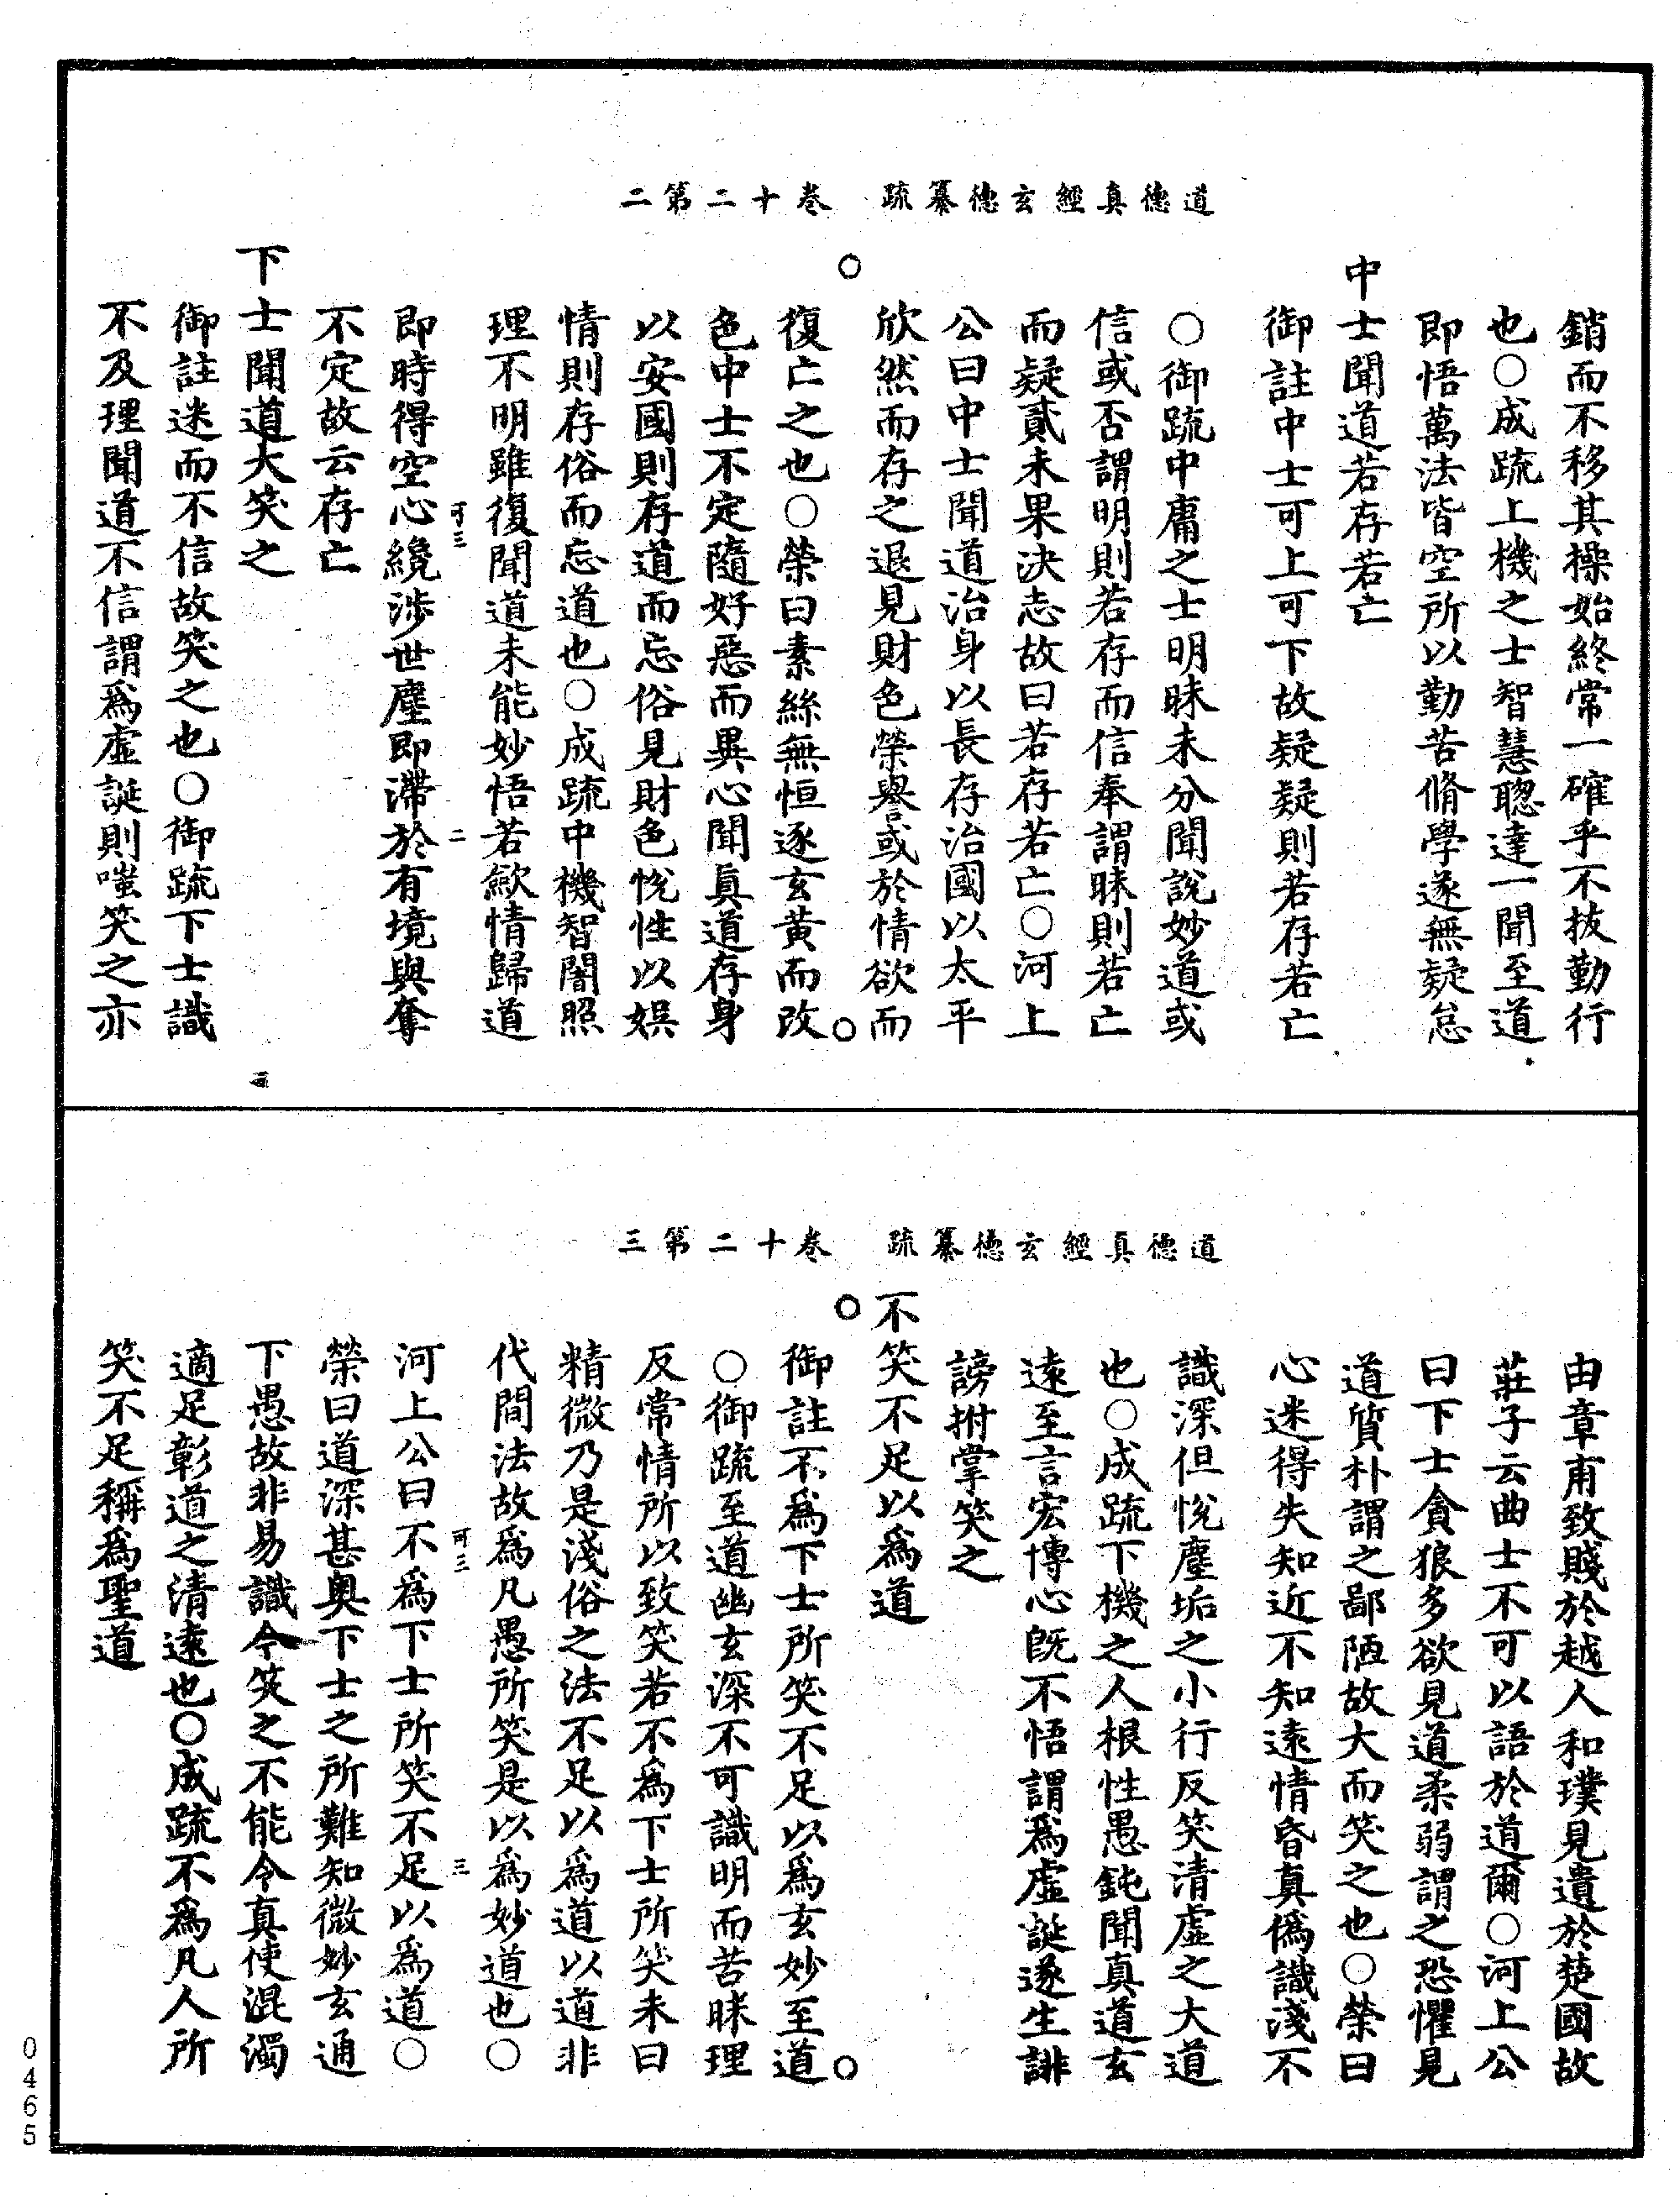 道德真經玄德纂疏　卷十二第二
銷而不移其操始終常一確乎不拔勤行
也○成疏上機之士智慧聰達一聞至道
即悟萬法皆空所以勤苦脩學遂無疑怠
中士聞道若存若亡
御註中士可上可下故疑疑則若存若亡
○御疏中庸之士明昧未分聞說妙道或
信或否謂明則若存而信奉謂昧則若亡
而疑貳未果決志故曰若存若亡○河上
公曰中士聞道治身以長存治國以太平
欣然而存之退見財色榮譽或於情欲而
復亡之也○榮曰素絲無恒逐玄黃而改
色中士不定隨好惡而異心聞真道存身
以安國則存道而忘俗見財色悅性以娛
情則存俗而忘道也○成疏中機智闇照
理不明雖復聞道未能妙悟若歛情歸道
可三　二
即時得空心纔涉世塵即滯於有境與奪
不定故云存亡
下士聞道大笑之
御註迷而不信故笑之也○御疏下士識
不及理聞道不信謂爲虛誕則嗤笑之亦
道德真經玄德纂疏　卷十二第三
由章甫致賤於越人和璞見遺於楚國故
莊子云曲士不可以語於道爾○河上公
曰下士貪狼多欲見道柔弱謂之恐懼見
道質朴謂之鄙陋故大而笑之也○榮曰
心迷得失知近不知遠情昏真僞識淺不
識深但悅塵垢之小行反笑清虛之大道
也○成疏下機之人根性愚鈍聞真道玄
遠至言宏博心既不悟謂爲虛誕遂生誹
謗拊掌笑之
不笑不足以爲道
御註不爲下士所笑不足以爲玄妙至道
○御疏至道幽玄深不可識明而若昧理
反常情所以致笑若不為下士所笑未曰
精微乃是淺俗之法不足以爲道以道非
代間法故爲凡愚所笑是以爲妙道也○
可三　三
河上公曰不爲下士所笑不足以爲道○
榮曰道深甚奧下士之所難知微妙玄通
下愚故非易識今笑之不能令真使混濁
適足彰道之清遠也○成疏不爲凡人所
笑不足稱爲聖道
0465